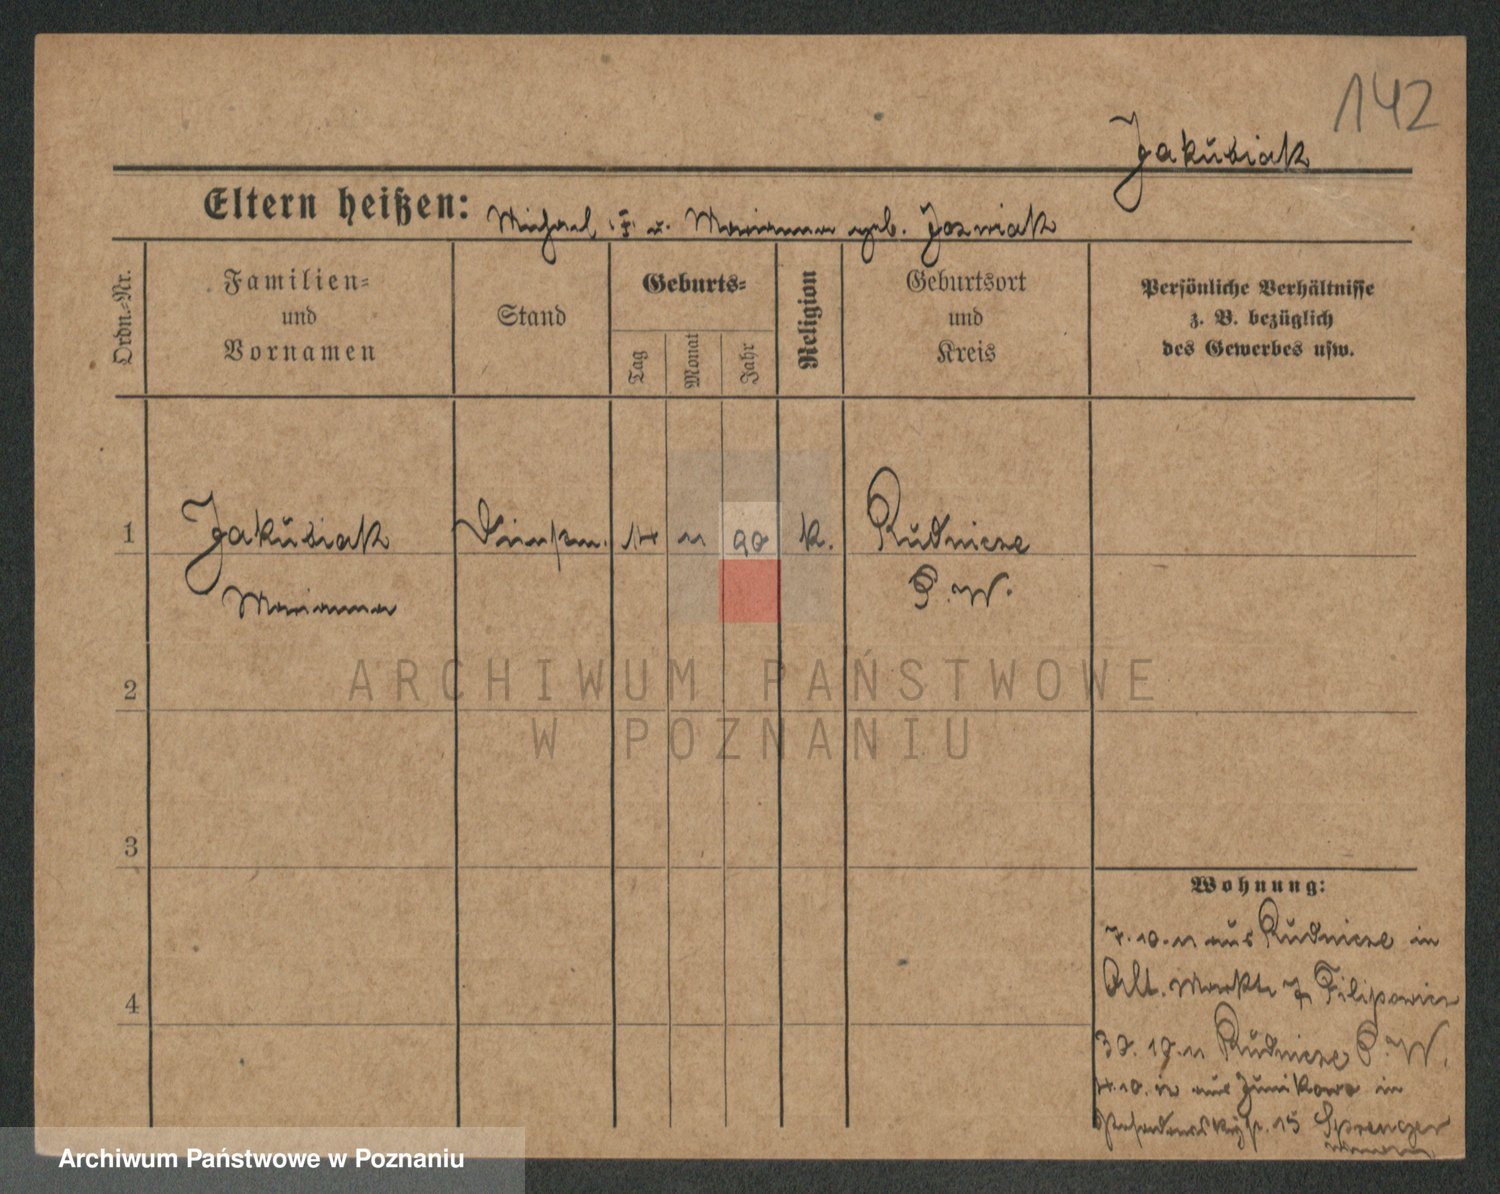 142
Jakubiak
Eltern heißen: Michael u. Marianna geb. Jozwiak
Ordn.-Nr.
Familien-
und
Vornamen
Stand
Geburts-
Tag
Monat
Jahr
Religion
Geburtsort
und
Kreis
Persönliche Verhältnisse
z. B. bezüglich
des Gewerbes usw.
1 Jakubiak 14 11 90 k. Rudnicze
Marianna P. W.
2
3
4
Wohnung:
7.10.11 aus Rudnicze in
Alt. Markt 7 Filipowicz
30. 10. 11 Rudnicze P. W.
4.10. 12 aus Junikowo in
15 Sprenger
ARCHIWUM PAŃSTWOWE
W POZNANIU
Archiwum Państwowe w Poznaniu